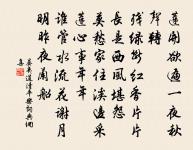 蓮開欲遍一夜秋
聲轉
殘綠斷紅香片片
長是西風堪怨
莫愁家住溪邊采
蓮心事年年
誰管水流花謝月
明昨夜蘭船
道清平樂詞典